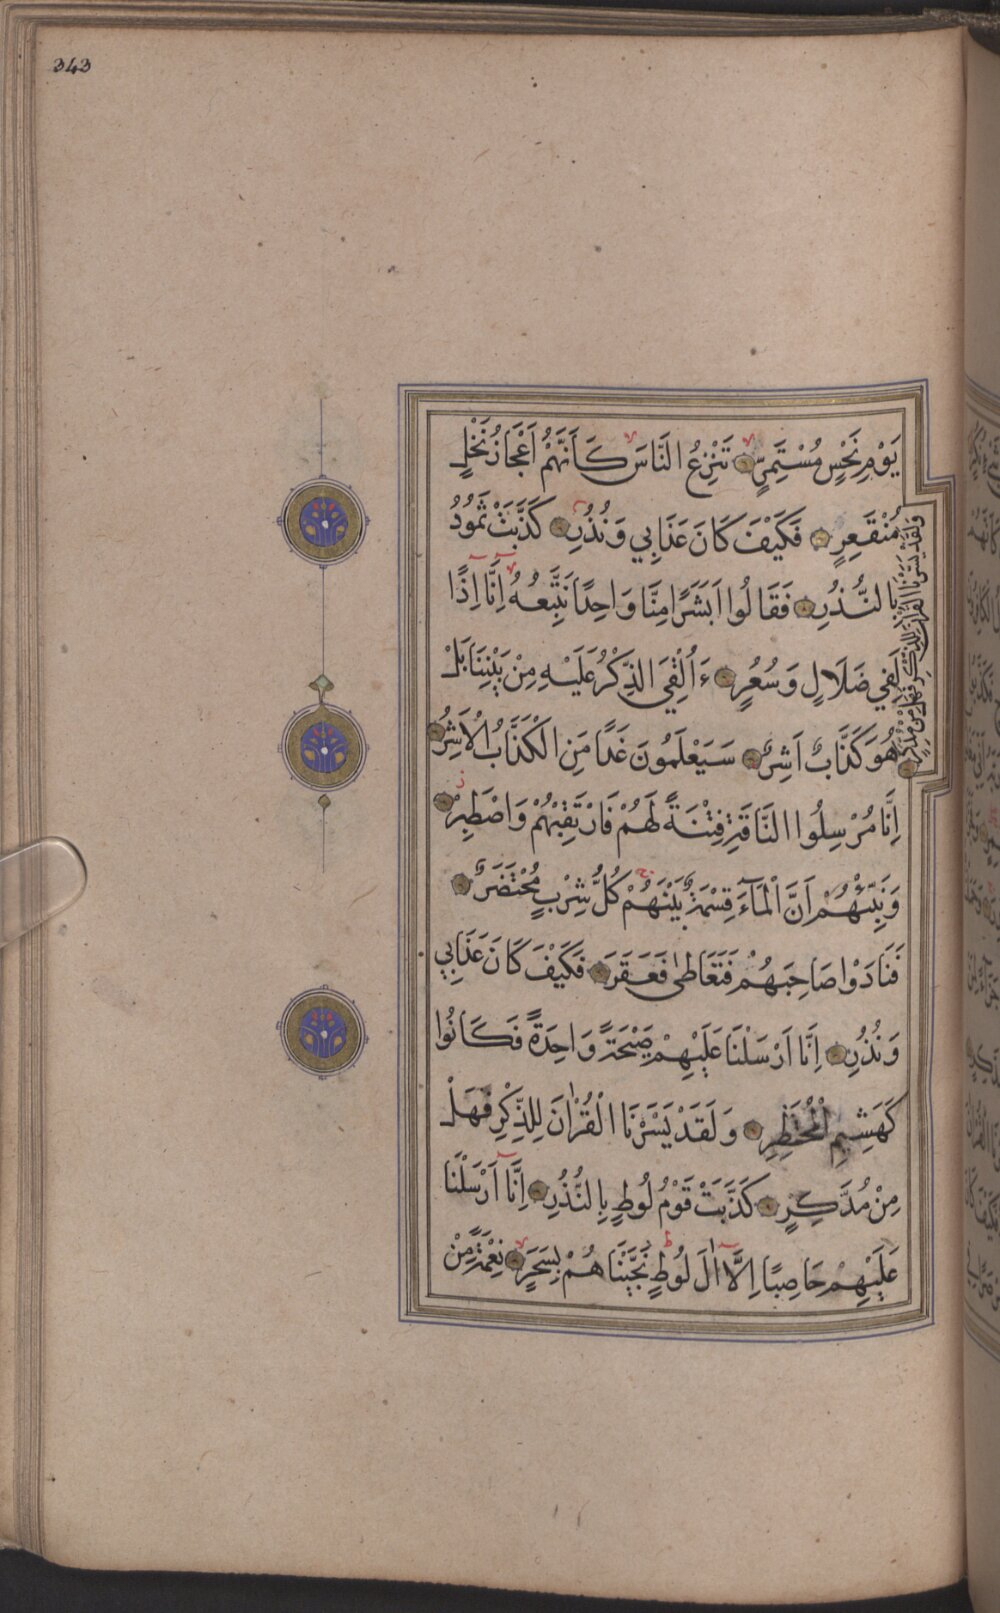 343
يَوْمِ نَحْسٍ مُسْتَمِرٍّ تَنْزِعُ النَّاسَ كَأَنَّهُمْ أَعْجَازُ نَخْلٍ
مُنْقَعِرٍ فَكَيْفَ كَانَ عَذَابِي وَنُذُرِ كَذَّبَتْ ثَمُودُ
بِالنُّذُرِ فَقَالُوا اَبَشَرًا مِنَّا وَاحِدًا نَتَّبِعُهُ اِنَّا اِذًا
لَفِي ضَلَالٍ وَسُعُرٍ ءَاُلْقِيَ الذِّكْرُ عَلَيْهِ مِنْ بَيْنِنَا بَلْ
هُوَ كَذَّابٌ اَشِرٌ سَيَعْلَمُونَ غَدًا مَنِ الْكَذَّابُ الْاَشِرُ
اِنَّا مُرْسِلُوا النَّاقَةِ فِتْنَةً لَهُمْ فَارْتَقِبْهُمْ وَاصْطَبِرْ
وَنَبِّئْهُمْ اَنَّ الْمَآءَ قِسْمَةٌ بَيْنَهُمْ كُلُّ شِرْبٍ مُحْتَضَرٌ
فَنَادَوْا صَاحِبَهُمْ فَتَعَاطٰى فَعَقَرَ فَكَيْفَ كَانَ عَذَابِي
وَنُذُرِ اِنَّا اَرْسَلْنَا عَلَيْهِمْ صَيْحَةً وَاحِدَةً فَكَانُوا
كَهَشِيمِ الْمُحْتَظِرِ وَلَقَدْ يَسَّرْنَا الْقُرْاٰنَ لِلذِّكْرِ فَهَلْ
مِنْ مُدَّكِرٍ كَذَّبَتْ قَوْمُ لُوطٍ بِالنُّذُرِ اِنَّا اَرْسَلْنَا
عَلَيْهِمْ حَاصِبًا اِلَّا اٰلَ لُوطٍ نَجَّيْنَاهُمْ بِسَحَرٍ نِعْمَةً مِنْ
وَلَقَدْ يَسَّرْنَا الْقُرْاٰنَ لِلذِّكْرِ فَهَلْ مِنْ مُدَّكِرٍ